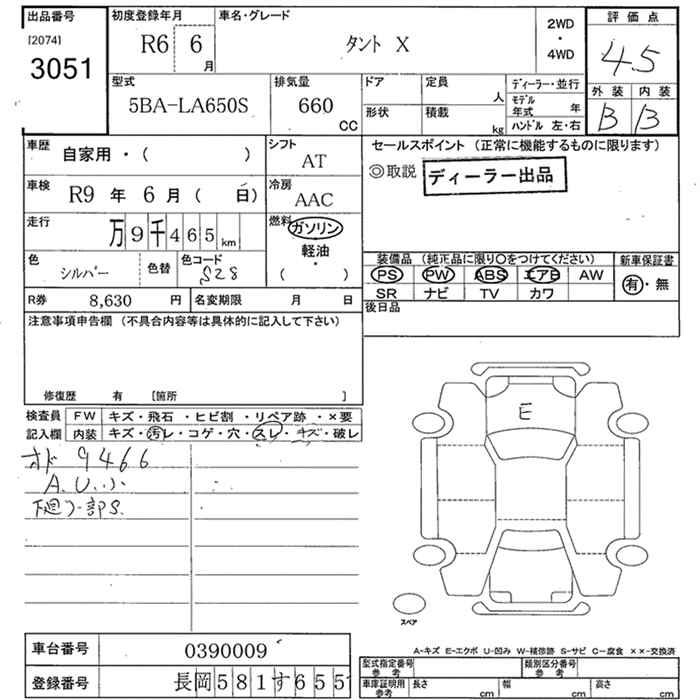 出品番号
[2074]
3051
初度登録年月
R6 6
月
車名・グレード
タント X
2WD
・
4WD
評価点
4.5
外装 内装
B B
型式
5BA-LA650S
排気量
660
CC
ドア
形状
定員
人
積載
kg
ディーラー・並行
モデル年式 年
ハンドル 左・右
車歴
自家用・( )
シフト
AT
セールスポイント (正常に機能するものに限ります)
◎取説 ディーラー出品
車検
R9 年 6 月 ( 日)
冷房
AAC
走行
万 9 千 4 6 5 km
燃料
ガソリン
軽油
・
( )
色
シルバー
色替
色コード
S28
装備品 (純正品に限り○をつけてください)
PS PW ABS エアB AW
SR ナビ TV カワ
新車保証書
有・無
R券 8,630 円
名変期限 月 日
後日品
注意事項申告欄 (不具合内容等は具体的に記入して下さい)
修復歴 有 [箇所 ]
検査員
記入欄
FW キズ・飛石・ヒビ割・リペア跡・×要
内装 キズ・汚レ・コゲ・穴・スレ・キズ・破レ
オド 9466
A.U小
下廻り一部S
E
スペア
車台番号 0390009
登録番号 長岡581す655
A-キズ E-エクボ U-凹み W-補修跡 S-サビ C-腐食 ××-交換済
型式指定番号
参考
類別区分番号
参考
車庫証明用
参考
長さ cm
幅 cm
高さ cm